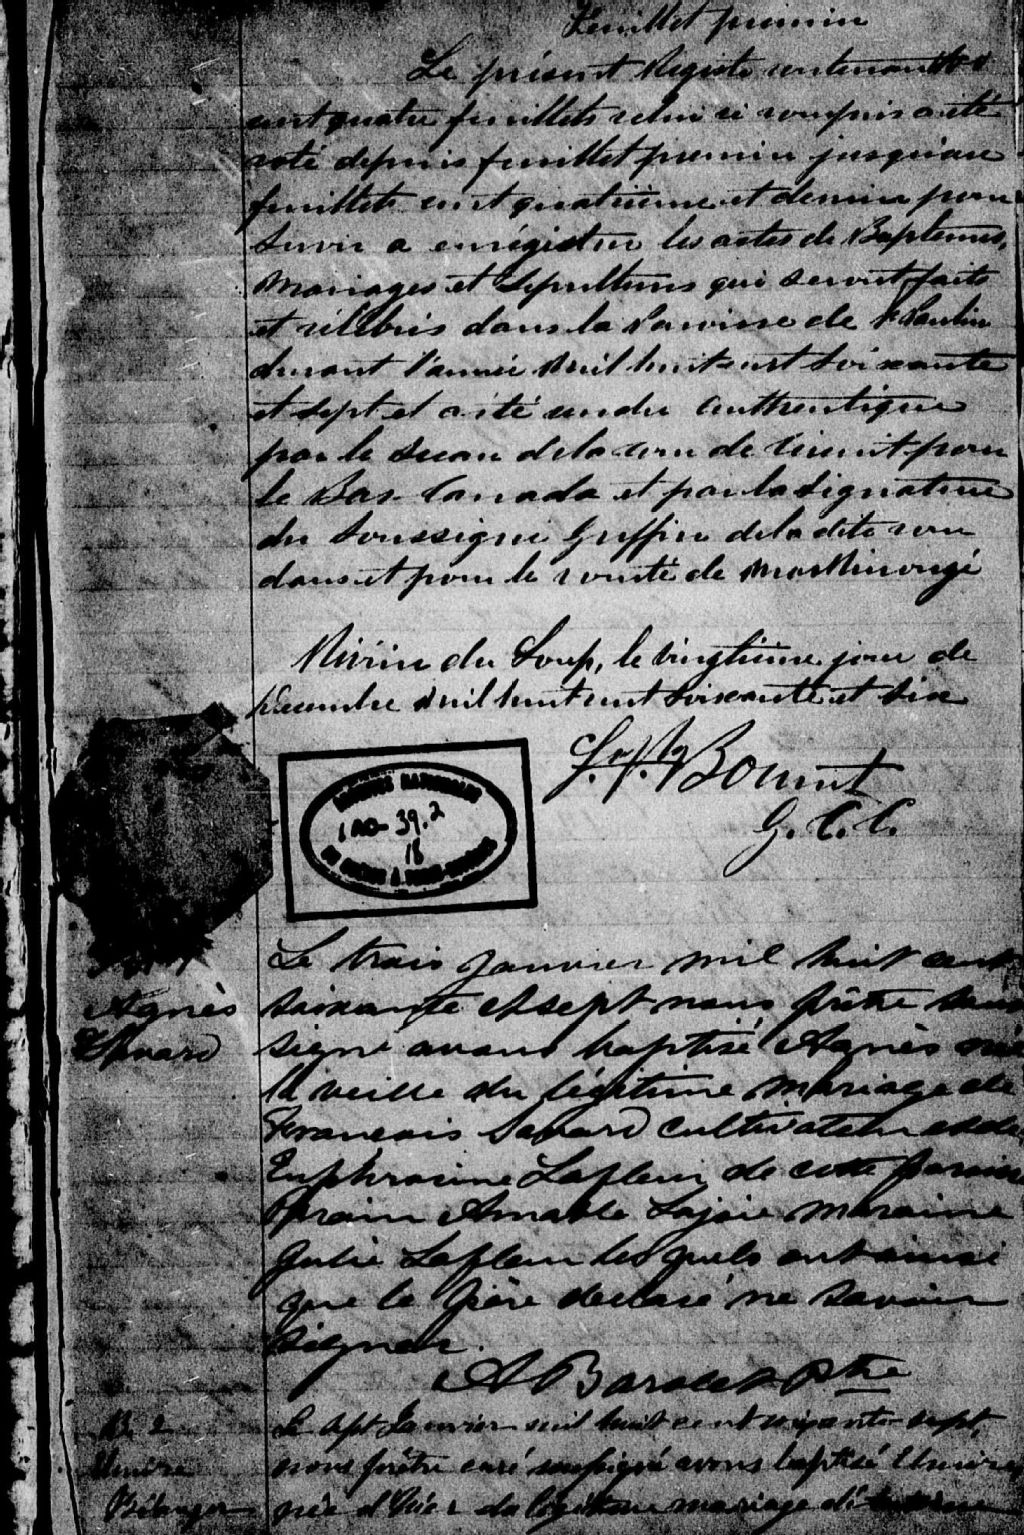 Feuillet premier
Le présent Registre contenant
cent quatre feuillets celui ci compris a été
coté depuis feuillet premier jusqu'au
feuillets cent quatrième et dernier pour
servir a enrégistrer les actes de Baptemes,
Mariages et Sépultures qui seront faits
et célébrés dans la Paroisse de St Paulin
durant l'année Mil huit cent soixante
et sept et a été rendu authentique
par le sceau de la cour de Circuit pour
le Bas-Canada et par la signature
du Soussigné Greffier de la dite cour
dans et pour le comté de Maskinongé
Rivière du Loup, le vingtième jour de
Décembre Mil huit cent soixante et six
G. C. C.
ARCHIVES NATIONALES
39.2
18
DU QUÉBEC À TROIS-RIVIÈRES
Agnès
Savard
Le trois Janvier mil huit cent
soixante et sept nous prêtre sous
signé avons baptisé Agnès née
la veille du légitime mariage de
François Savard cultivateur et de
Euphrosine Lafleur de cette paroisse
Parain Amable Lajoie Maraine
Julie Lafleur lesquels ont ainsi
que le père déclaré ne savoir
signer.
Ptre
B. 2
Elmire
Bélanger
Le sept Janvier mil huit cent soixante-sept,
nous prêtre curé soussigné avons baptisé Elmire
née d'hier du légitime mariage